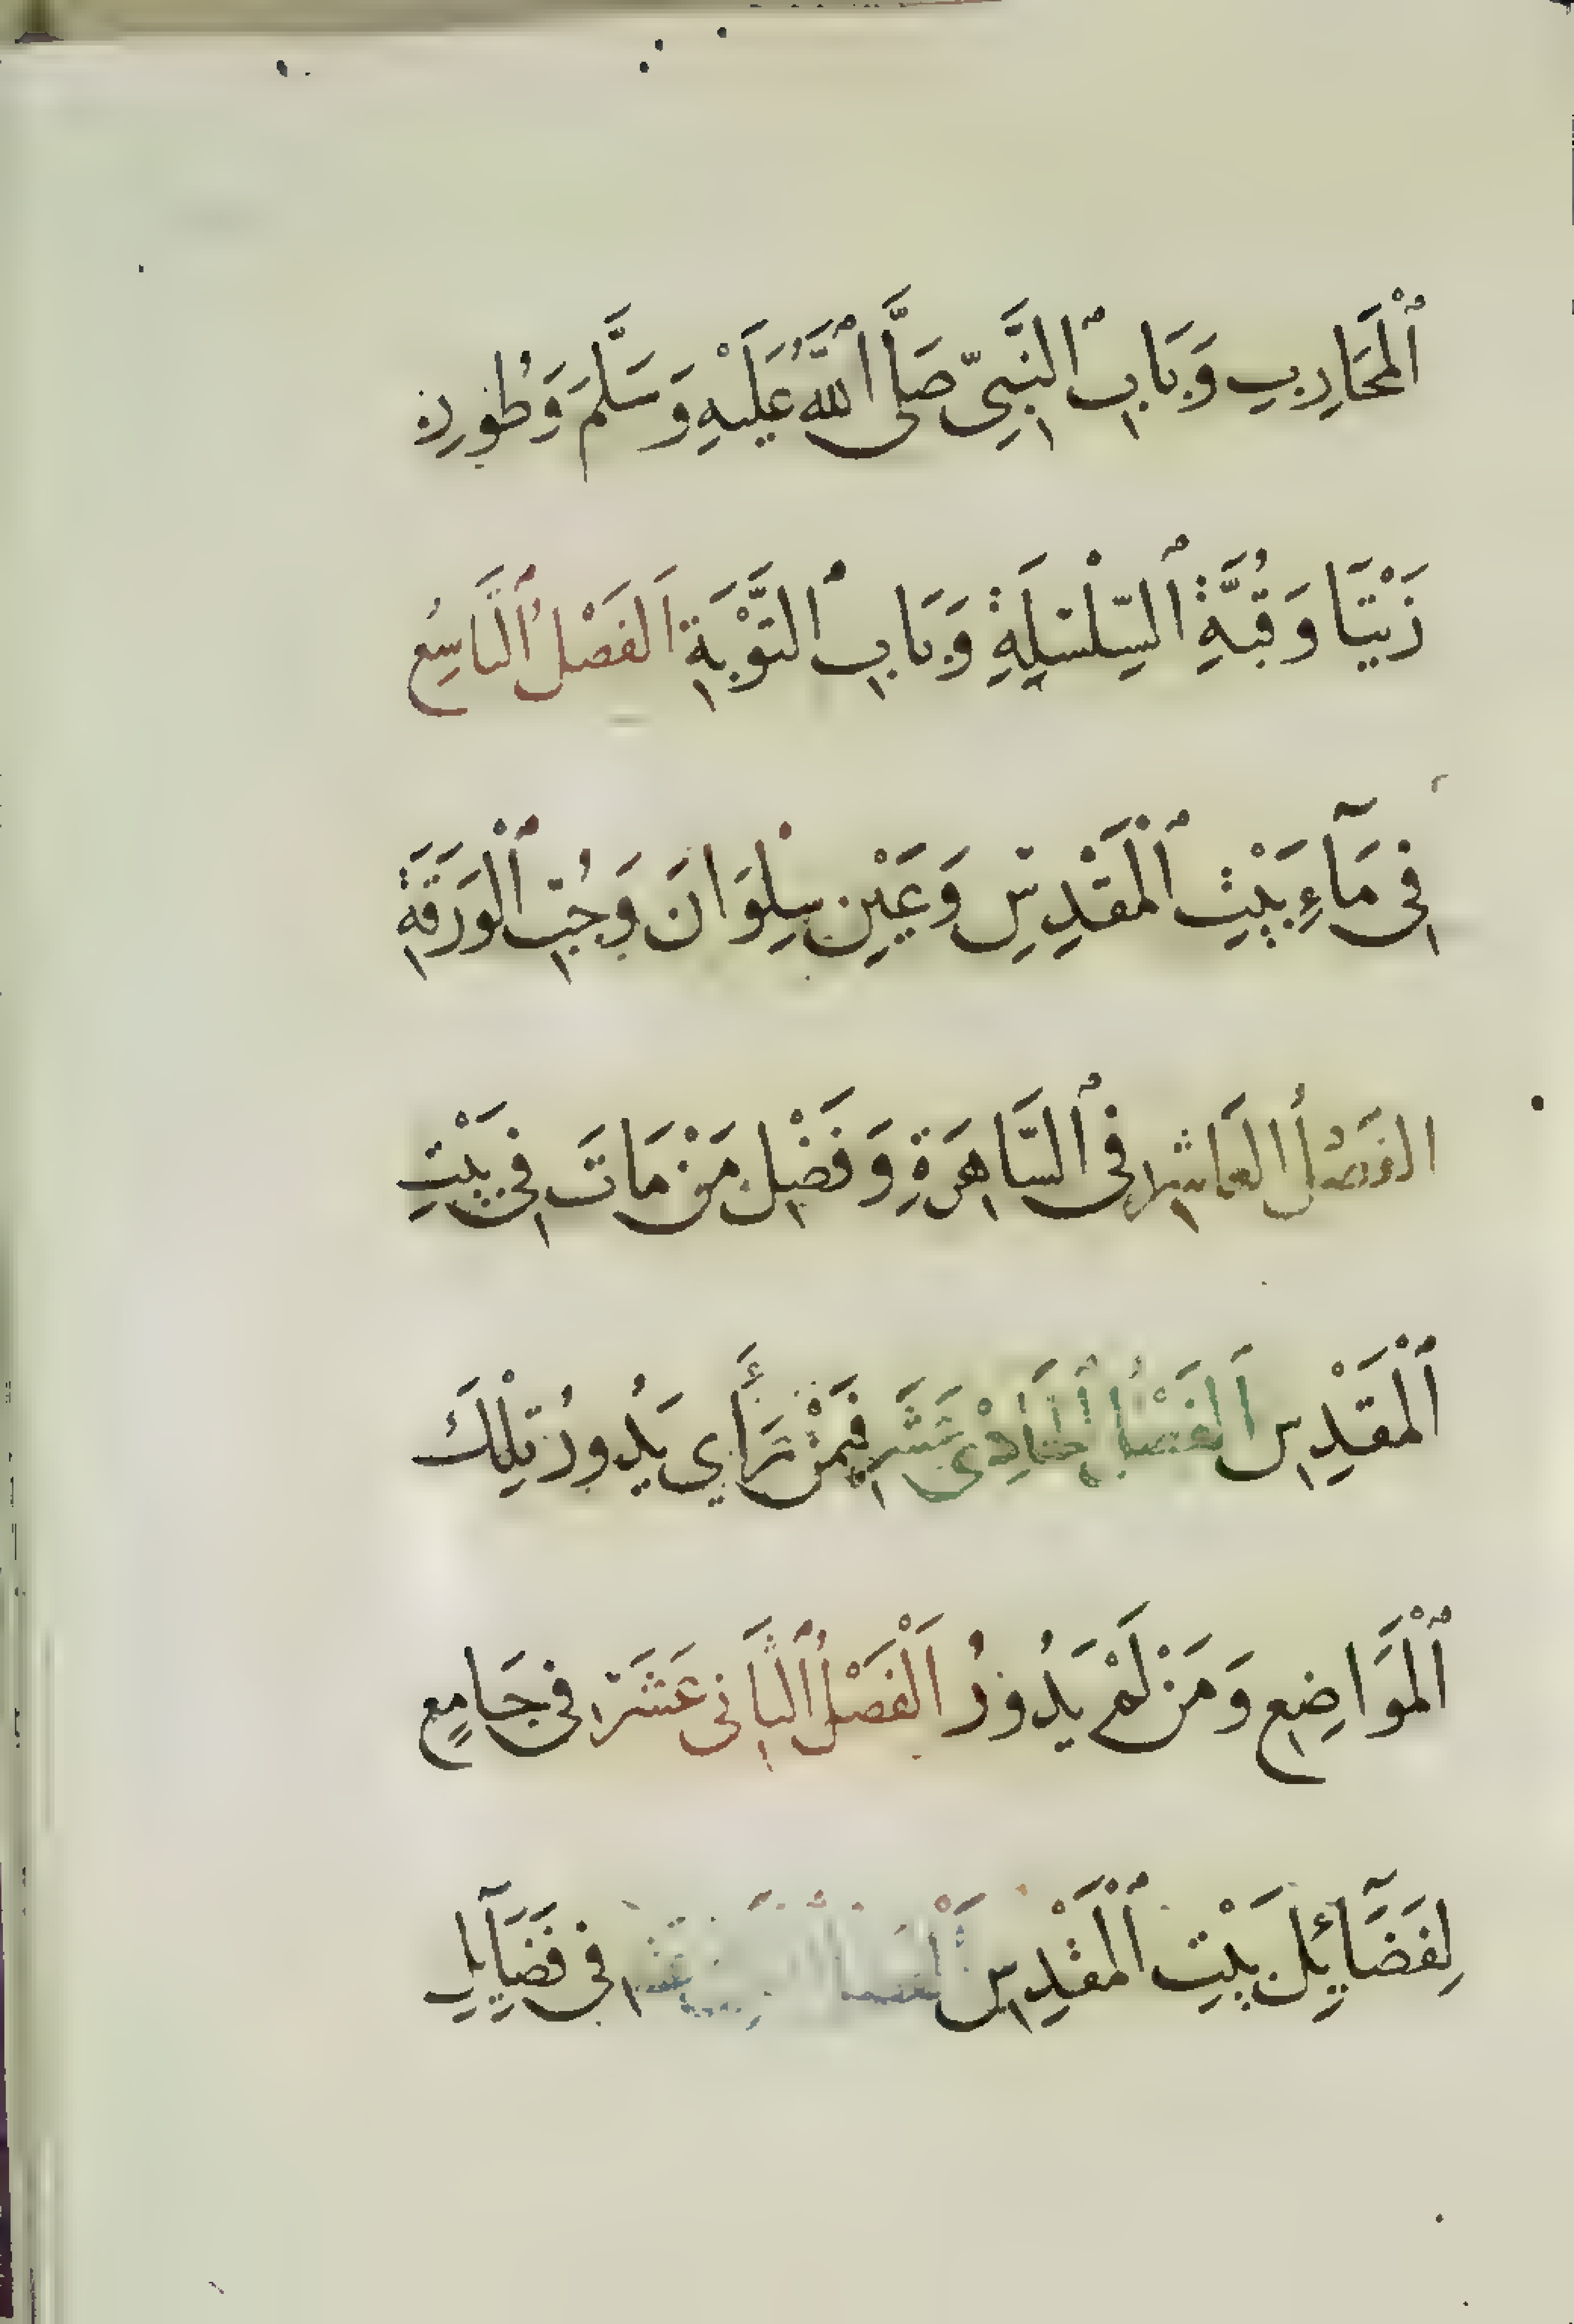 ٱلْمَحَارِيبِ وَبَابِ ٱلنَّبِيِّ صَلَّى ٱللَّهُ عَلَيْهِ وَسَلَّمَ وَطُورِ
زَيْتَا وَقُبَّةِ ٱلسِّلْسِلَةِ وَبَابِ ٱلتَّوْبَةِ اَلفَصْلُ ٱلتَّاسِعُ
فِى مَآءِ بَيْتِ ٱلْمَقْدِسِ وَعَيْنِ سِلْوَانَ وَجُبِّ ٱلْوَرَقَةِ
الفَصْلُ العَاشِر فِى ٱلسَّاهِرَةِ وَفَضْلِ مَنْ مَاتَ فِى بَيْتِ
ٱلْمَقْدِسِ اَلفَصْلُ ٱلحَادِىْ عَشَر فِيمَنْ رَأَى يَدُورُ تِلْكَ
ٱلْمَوَاضِعِ وَمَنْ لَمْ يَدُورُ اَلْفَصْلُ ٱلثَّانِى عَشَرَ فِى جَامِعٍ
لِفَضَآئِلِ بَيْتِ ٱلْمَقْدِسِ فِى فَضَآيِلِ